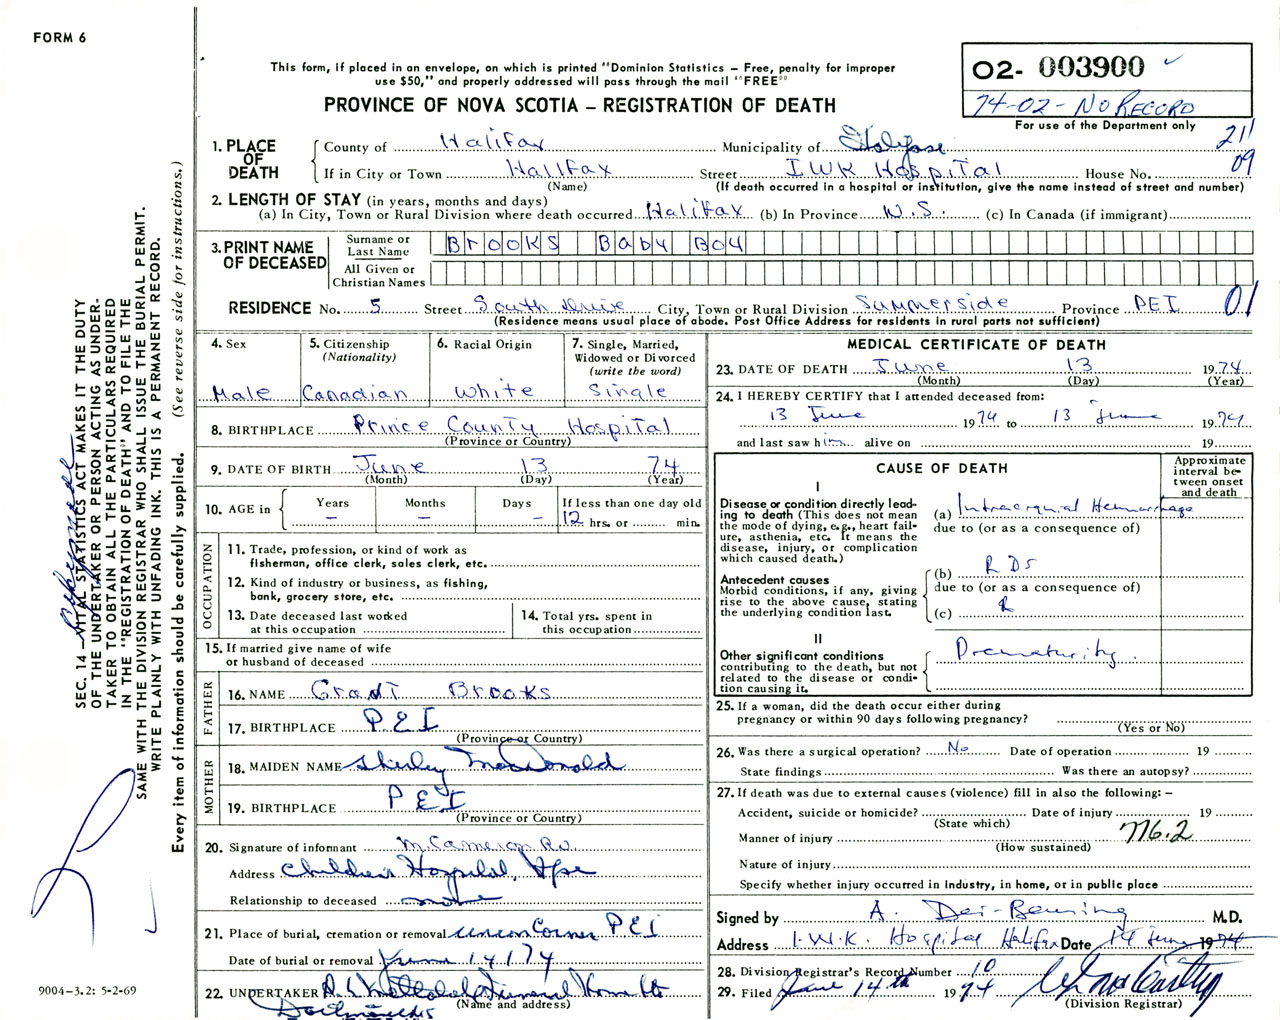 FORM 6
This form, if placed in an envelope, on which is printed "Dominion Statistics – Free, penalty for improper
use $50," and properly addressed will pass through the mail "FREE"
PROVINCE OF NOVA SCOTIA – REGISTRATION OF DEATH
02- 003900
74-02- NO RECORD
For use of the Department only
21
09
1. PLACE OF DEATH
County of Halifax Municipality of
If in City or Town Halifax Street IWK Hospital House No.
(Name) (If death occurred in a hospital or institution, give the name instead of street and number)
2. LENGTH OF STAY (in years, months and days)
(a) In City, Town or Rural Division where death occurred Halifax (b) In Province N.S. (c) In Canada (if immigrant)
3. PRINT NAME OF DECEASED
Surname or Last Name Brooks Baby Boy
All Given or Christian Names
RESIDENCE No. 5 Street South Drive City, Town or Rural Division Summerside Province PEI 01
(Residence means usual place of abode. Post Office Address for residents in rural parts not sufficient)
4. Sex Male
5. Citizenship (Nationality) Canadian
6. Racial Origin White
7. Single, Married, Widowed or Divorced (write the word) Single
8. BIRTHPLACE Prince County Hospital
(Province or Country)
9. DATE OF BIRTH June 13 74
(Month) (Day) (Year)
10. AGE in Years – Months – Days – If less than one day old 12 hrs. or min.
OCCUPATION
11. Trade, profession, or kind of work as
fisherman, office clerk, sales clerk, etc.
12. Kind of industry or business, as fishing,
bank, grocery store, etc.
13. Date deceased last worked
at this occupation
14. Total yrs. spent in
this occupation
15. If married give name of wife
or husband of deceased
FATHER
16. NAME Grant Brooks
17. BIRTHPLACE PEI
(Province or Country)
MOTHER
18. MAIDEN NAME Shirley MacDonald
19. BIRTHPLACE PEI
(Province or Country)
20. Signature of informant M. Cameron
Address Children's Hospital, Hfx
Relationship to deceased none
21. Place of burial, cremation or removal Union Corner PEI
Date of burial or removal June 14/74
22. UNDERTAKER Funeral Home
(Name and address)
MEDICAL CERTIFICATE OF DEATH
23. DATE OF DEATH June 13 1974
(Month) (Day) (Year)
24. I HEREBY CERTIFY that I attended deceased from:
13 June 1974 to 13 June 1974
and last saw him alive on 19
CAUSE OF DEATH
Approximate interval between onset and death
I
Disease or condition directly lead-
ing to death (This does not mean
the mode of dying, e.g., heart fail-
ure, asthenia, etc. It means the
disease, injury, or complication
which caused death.)
(a) Intracranial Hemorrhage
due to (or as a consequence of)
Antecedent causes
Morbid conditions, if any, giving
rise to the above cause, stating
the underlying condition last.
(b) RDS
due to (or as a consequence of)
(c)
II
Other significant conditions
contributing to the death, but not
related to the disease or condi-
tion causing it.
Prematurity.
25. If a woman, did the death occur either during
pregnancy or within 90 days following pregnancy?
(Yes or No)
26. Was there a surgical operation? No Date of operation 19
State findings Was there an autopsy?
27. If death was due to external causes (violence) fill in also the following: –
Accident, suicide or homicide? Date of injury 19
(State which)
Manner of injury 776.2
(How sustained)
Nature of injury
Specify whether injury occurred in industry, in home, or in public place
Signed by A. M.D.
Address I.W.K. Hospital Halifax Date 14 June 1974
28. Division Registrar's Record Number 10
29. Filed June 14th 1974
(Division Registrar)
SEC. 14 – VITAL STATISTICS ACT MAKES IT THE DUTY
OF THE UNDERTAKER OR PERSON ACTING AS UNDER-
TAKER TO OBTAIN ALL THE PARTICULARS REQUIRED
IN THE "REGISTRATION OF DEATH" AND TO FILE THE
SAME WITH THE DIVISION REGISTRAR WHO SHALL ISSUE THE BURIAL PERMIT.
WRITE PLAINLY WITH UNFADING INK. THIS IS A PERMANENT RECORD.
Every item of information should be carefully supplied. (See reverse side for instructions.)
9004-3.2: 5-2-69